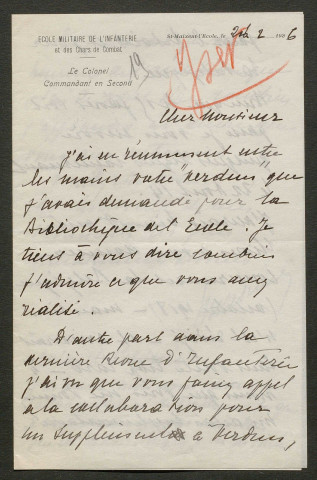 ECOLE MILITAIRE DE L'INFANTERIE
et des Chars de Combat
St-Maixent-l'Ecole, le 24 2 1936
Le Colonel
Commandant en Second
19
Yser
Cher Monsieur
J'ai eu récemment entre
les mains votre "Verdun" que
j'avais demandé pour la
Bibliothèque de l'Ecole. Je
tiens à vous dire combien
j'admire ce que vous avez
réalisé.
D'autre part dans la
dernière Revue d'Infanterie
j'ai vu que vous faisiez appel
à la collaboration pour
un supplément à Verdun,